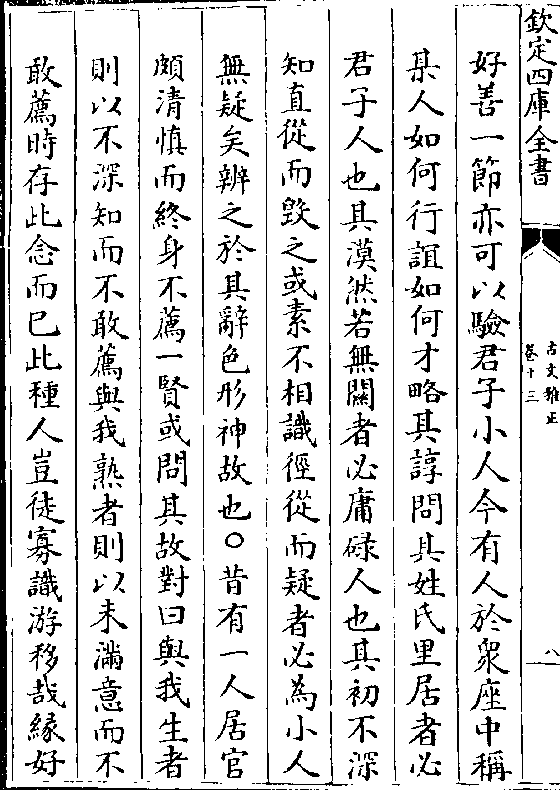 欽定四庫全書
古文雅正
卷十三
八
好善一節亦可以驗君子小人今有人於衆座中稱
某人如何行誼如何才略其諄問其姓氏里居者必
君子人也其漠然若無關者必庸碌人也其初不深
知直從而毀之或素不相識徑從而疑者必為小人
無疑矣辨之於其辭色形神故也○昔有一人居官
頗清慎而終身不薦一賢或問其故對曰與我生者
則以不深知而不敢薦與我熟者則以未滿意而不
敢薦時存此念而已此種人豈徒寡識游移哉縁好